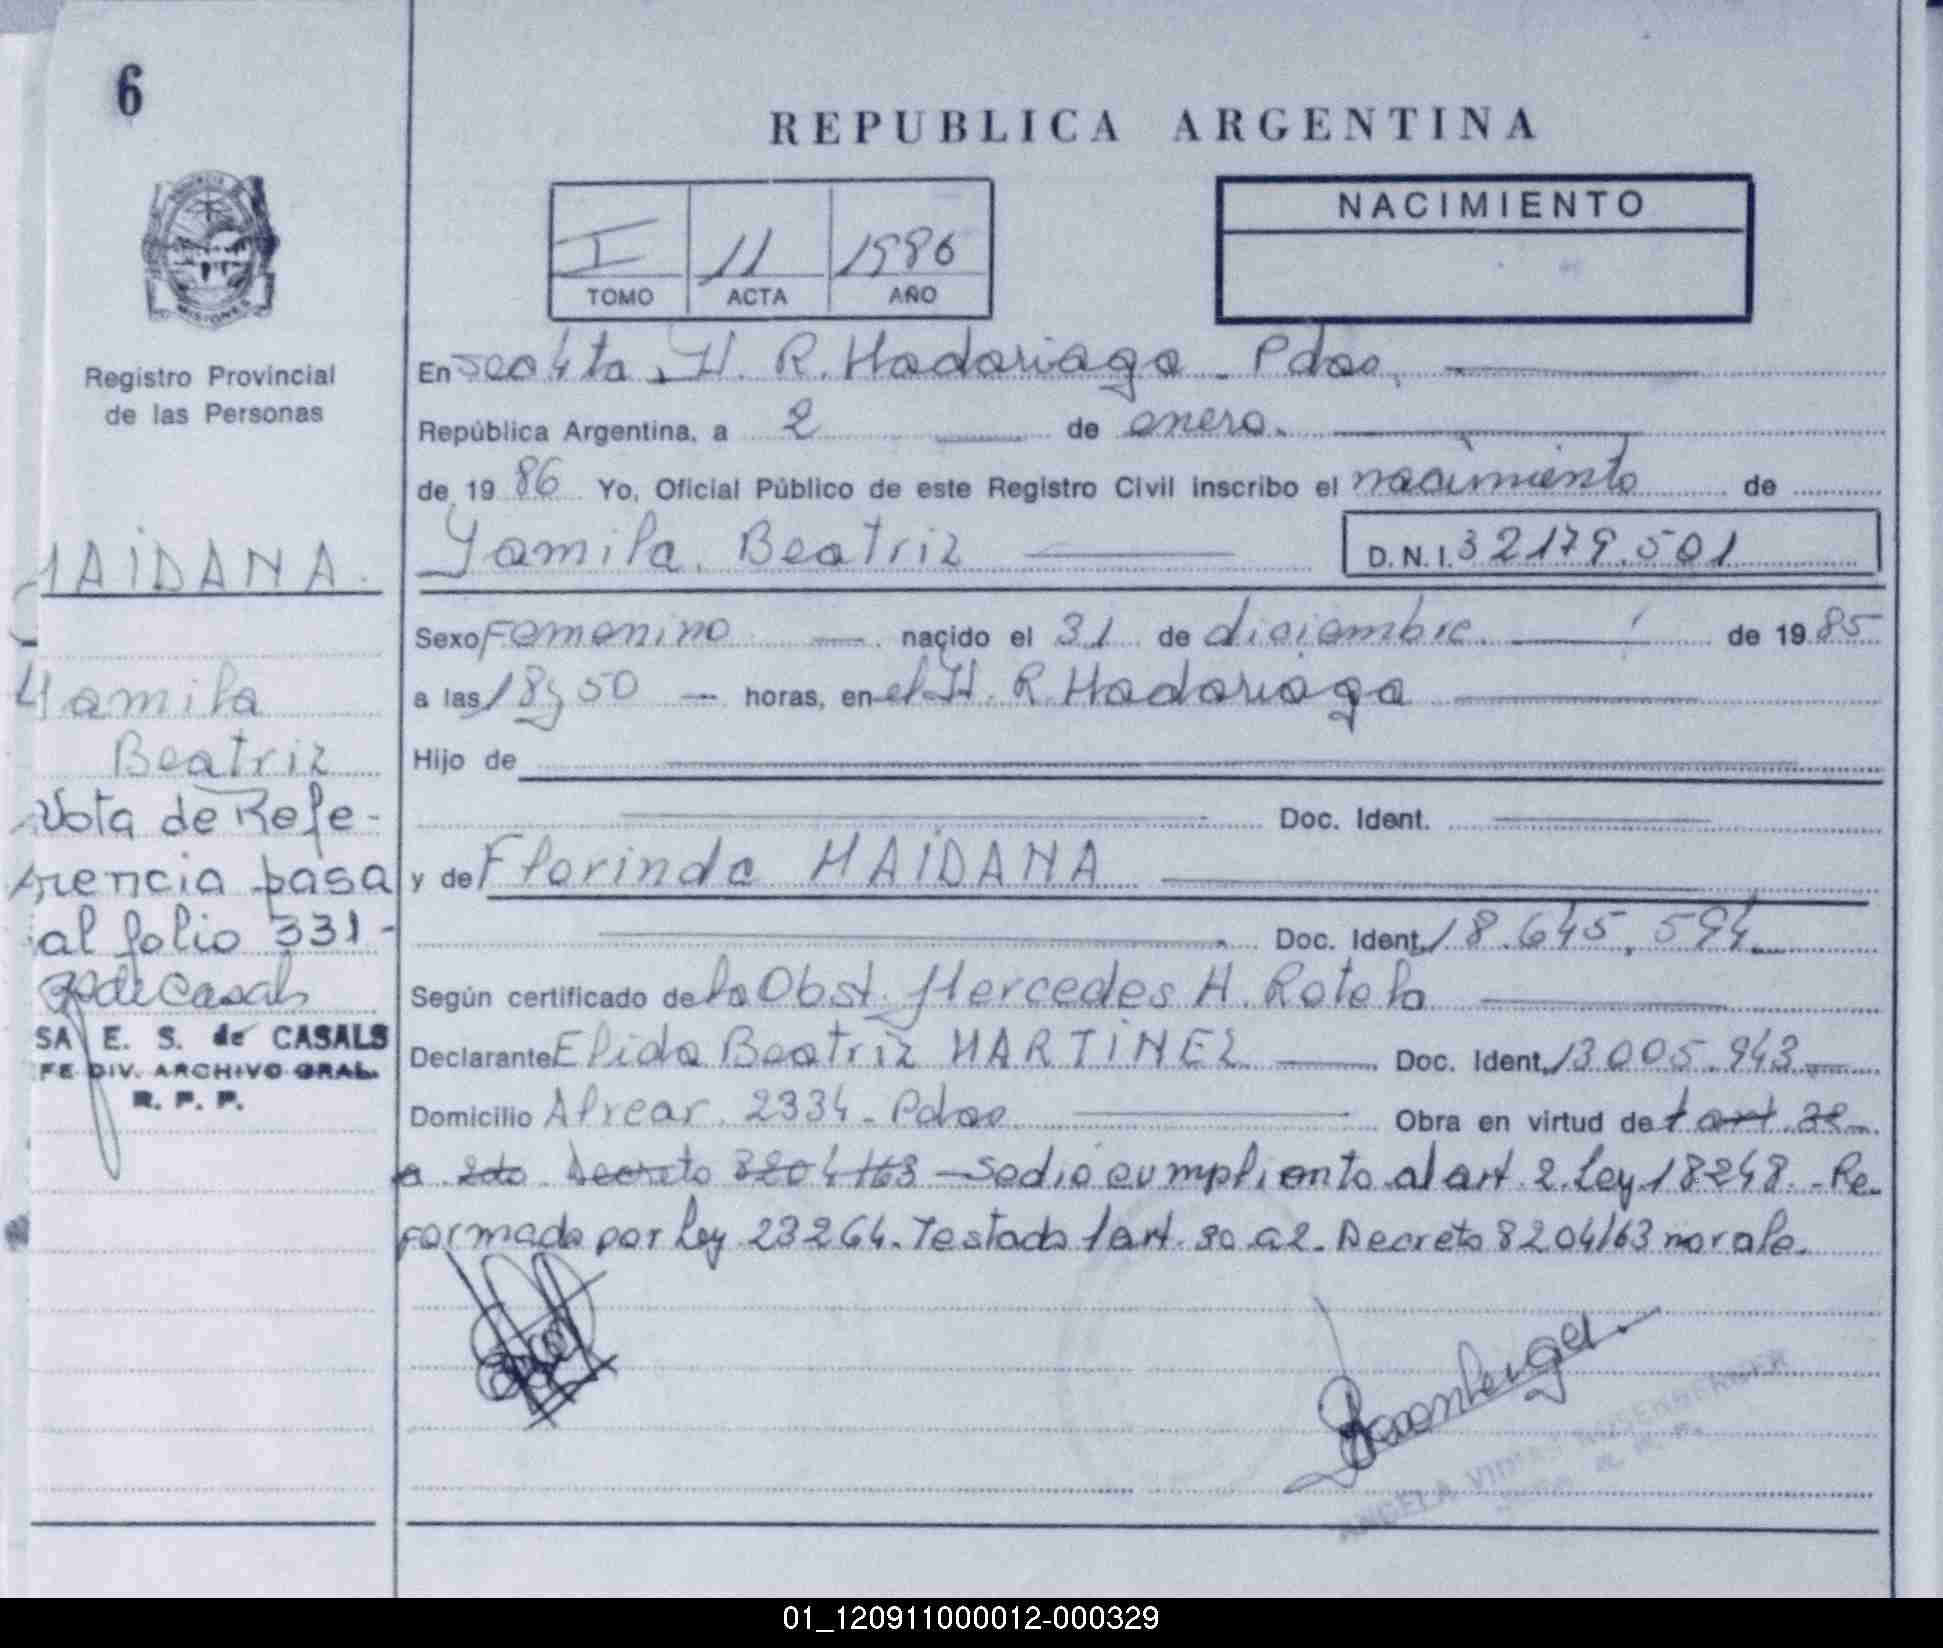 6
REPUBLICA ARGENTINA
I 11 1986
TOMO ACTA AÑO
NACIMIENTO
MISIONES
Registro Provincial
de las Personas
En Secc 4ta. H. R. Madariaga - Pdas.
República Argentina, a 2 de enero.
de 1986 Yo, Oficial Público de este Registro Civil inscribo el nacimiento de
Yamila Beatriz D.N.I. 32179.501
MAIDANA.
Sexo Femenino nacido el 31 de diciembre de 1985
a las 18 y 50 horas, en el H. R. Madariaga
Yamila
Beatriz
Hijo de
Doc. Ident.
y de Florinda MAIDANA
Doc. Ident. 18.645.594
Nota de Refe-
rencia pasa
al folio 331-
de Casals
SA E. S. de CASALS
FE DIV. ARCHIVO GRAL.
R. P. P.
Según certificado de la Obst. Mercedes H. Rotela
Declarante Elida Beatriz MARTINEZ Doc. Ident. 13005.943
Domicilio Alvear 2334 - Pdas Obra en virtud de 1 art. 30
a 2do Decreto 8204/63 - Se dio cumplimiento al art. 2 Ley 18248. - Re-
formada por ley 23264. Testado 1 art. 30 a 2. Decreto 8204/63 no vale.
Rosenberger
ANGELA ROSENBERGER
01_120911000012-000329